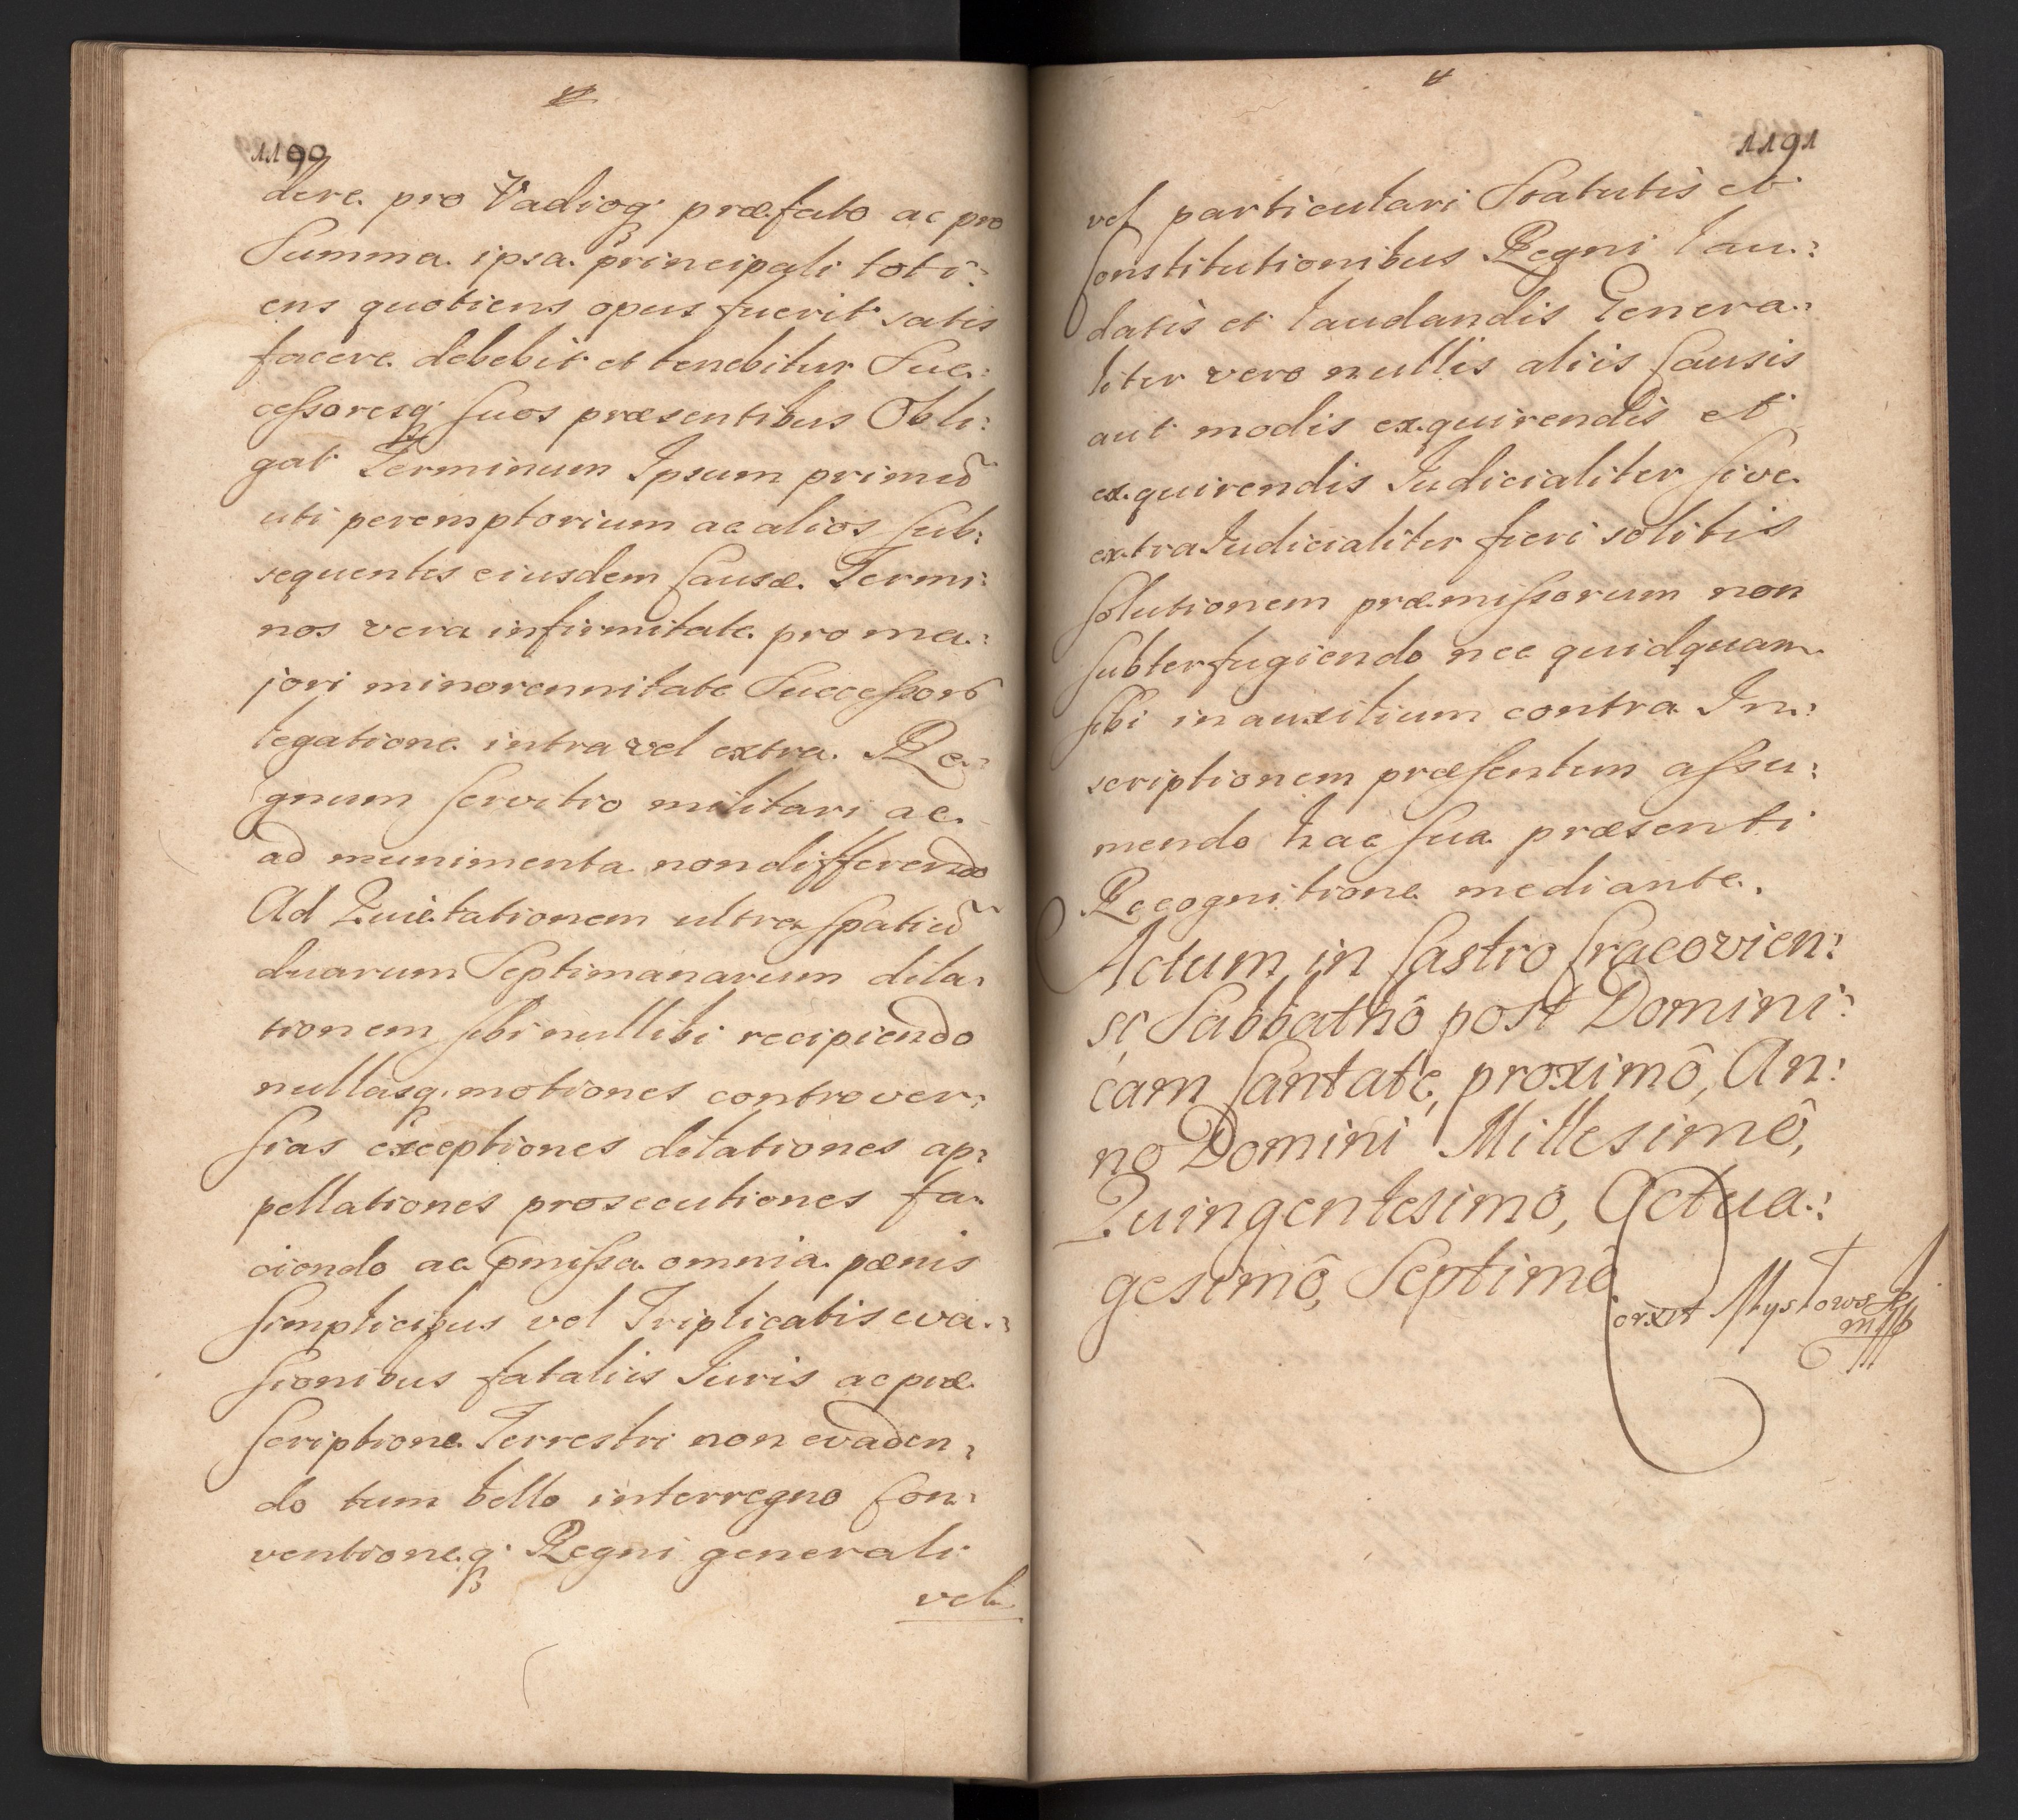 1190
dere pro Vadioq; præfato ac pro
Summa ipsa principali toti:
ens quotiens opus fuerit satis
facere debebit et tenebitur Suc:
cessoresq; suos præsentibus Obli:
gat Terminum Ipsum primũ
uti peremptorium ac alios sub:
sequentes eiusdem Causæ Termi:
nos vera infirmitate pro ma:
jori minorennitate Successorũ
legatione intra vel extra Re:
gnum servitio militari ac
ad munimenta non differendo
Ad Quietationem ultra spatiũ
duarum Septimanarum dila:
tionem sibi nullibi recipiendo
nullasq; motiones controver:
sias exceptiones dilationes ap:
pellationes prosecutiones fa:
ciendo ac præmissa omnia pænis
simplicibus vel Triplicatis eva:
sionibus fataliis Iuris ac præ
scriptione Terrestri non evaden:
do tum bello interregno Con:
ventioneq; Regni generali
vel
1191
vel particulari Statutis et
Constitutionibus Regni lau:
datis et laudandis Genera:
liter vero nullis aliis Causis
aut modis exquirendis et
exquirendis Iudicialiter sive
extraIudicialiter fieri solitis
solutionem præmissorum non
subterfugiendo nec quidquam
sibi in auxilium contra In:
scriptionem præsentem assu:
mendo hac sua præsenti
Recognitione mediante.
Actum in Castro Cracovien:
si Sabbathô post Domini:
cam Cantate, proximô, An:
no Domini Millesimô,
Quingentesimô, Octua:
gesimô, Septimô
corxit
mpp